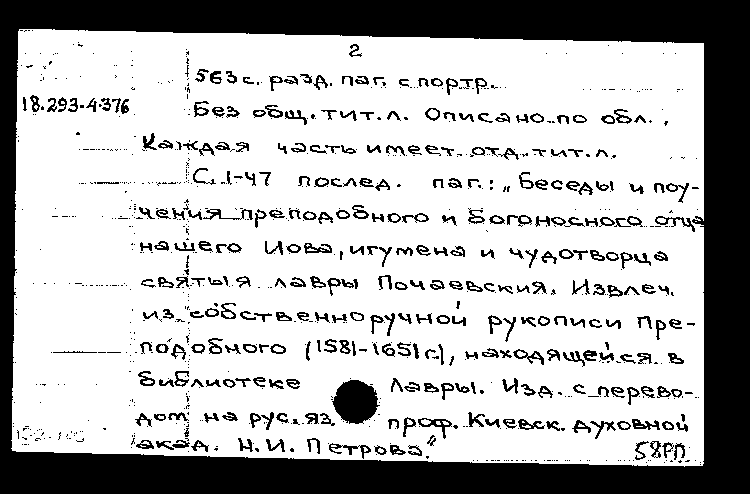 2
563 с. разд. паг. с портр.
18.293-4376
Без общ. тит. л. Описано по обл.,
Каждая часть имеет отд. тит. л.
С. 1-47 послед. паг.: „Беседы и поу-
чения преподобного и богоносного отца
нашего Иова, игумена и чудотворца
святыя лавры Почаевския. Извлеч.
из собственноручной рукописи Пре-
подобного (1581-1651 г.), находящейся в
библиотеке лавры. Изд. с перево-
дом на рус. яз. проф. Киевск. духовной
акад. Н. И. Петрова."
58РП